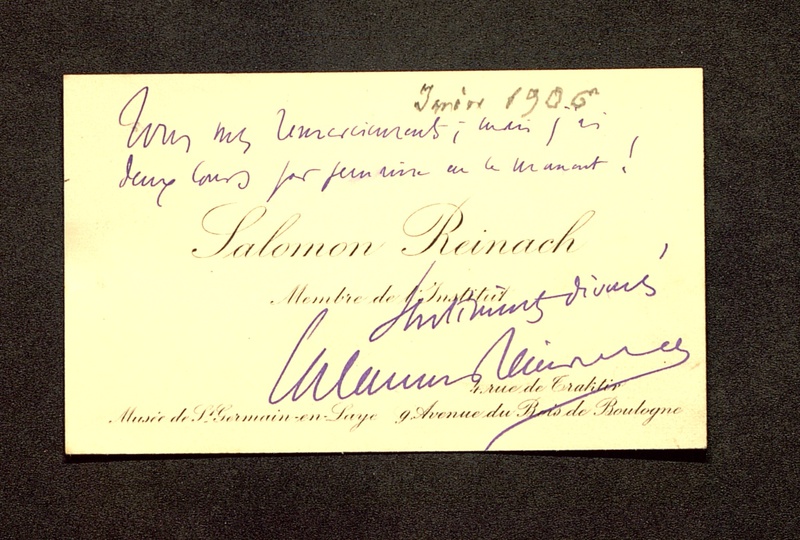 Janvier 1906
Tous mes remerciements; mais j'ai
deux cours par semaine en ce moment!
Salomon Reinach
Membre de l'Institut
Sentiments dévoués
Salomon Reinach
4, rue de Traktir
Musée de St Germain-en-Laye 9 Avenue du Bois de Boulogne